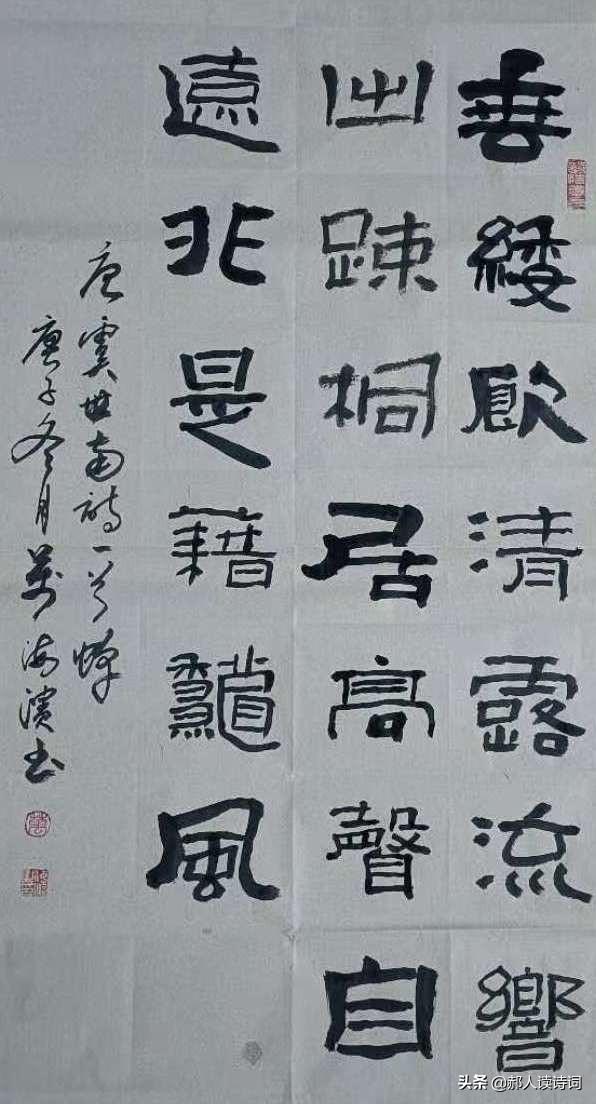 垂緌飲清露流響
出踈桐居高聲自
遠非是藉龝風
唐虞世南詩一首蟬
庚子冬月萬海濱書
头条 @郝人读诗词